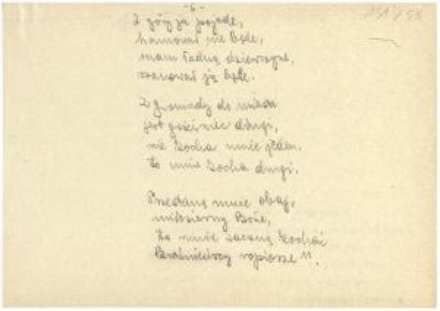 -6-
Z góry ja pojadę,
hamować nie będę,
mam ładną dziewczynę,
szanować ją będę.
Z gromady do miasta
jest gościniec długi,
nie kocha mnie jeden,
to mnie kocha drugi,
Przestaną mnie obaj,
miłosierny Boże,
to mnie zaczną kochać